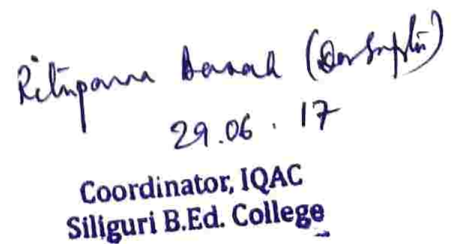 Rituparna Basak (Dasgupta)
29.06.17
Coordinator, IQAC
Siliguri B.Ed. College